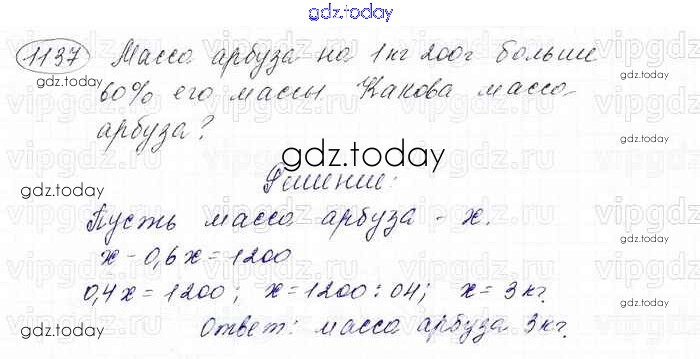 gdz.today
1137 Масса арбуза на 1 кг 200г больше
60% его массы. Какова масса
арбуза?
gdz.today
gdz.today
gdz.today
Решение:
Пусть масса арбуза - х.
х - 0,6х = 1200
0,4х = 1200; х = 1200 : 04; х = 3 кг.
Ответ: масса арбуза 3 кг.
gdz.today
gdz.today